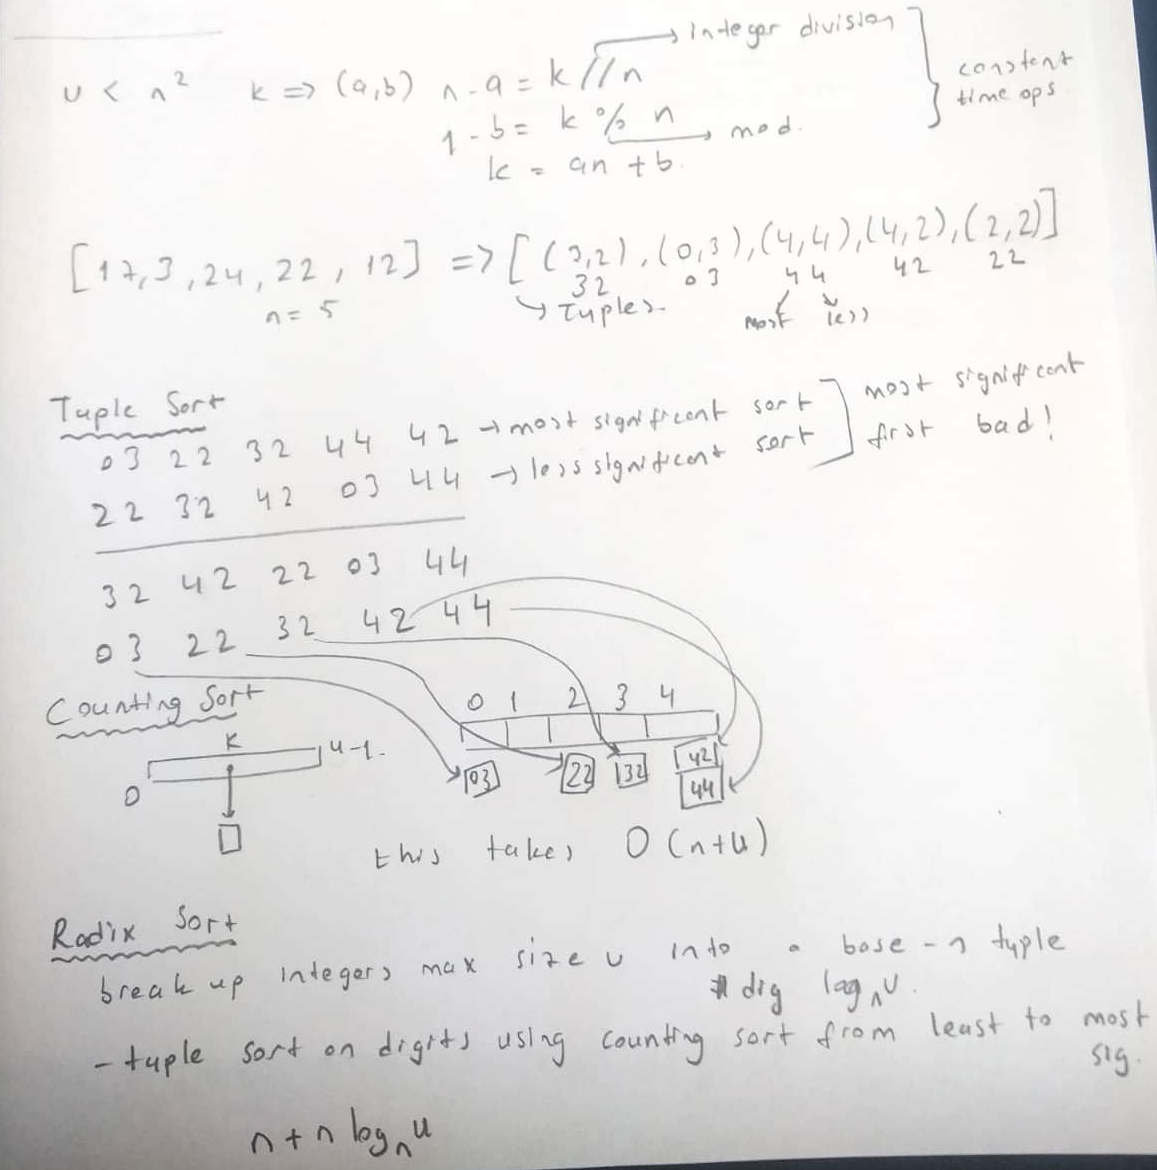 integer division
u < n² k => (a,b) n - a = k // n
constant
time ops.
1 - b = k % n mod.
k = an + b.
[17,3,24,22,12] => [(3,2),(0,3),(4,4),(4,2),(2,2)]
32 03 44 42 22
n = 5 Tuples most less
Tuple Sort
03 22 32 44 42 → most significant sort most significant
22 32 42 03 44 → less significant sort first bad!
32 42 22 03 44
03 22 32 42 44
Counting Sort 0 1 2 3 4
K u-1.
0 03 22 32 42
44
this takes O(n+u)
Radix Sort
break up integers max size u into a base-n tuple
# dig log_n u.
- tuple sort on digits using counting sort from least to most
sig.
n + n log_n u